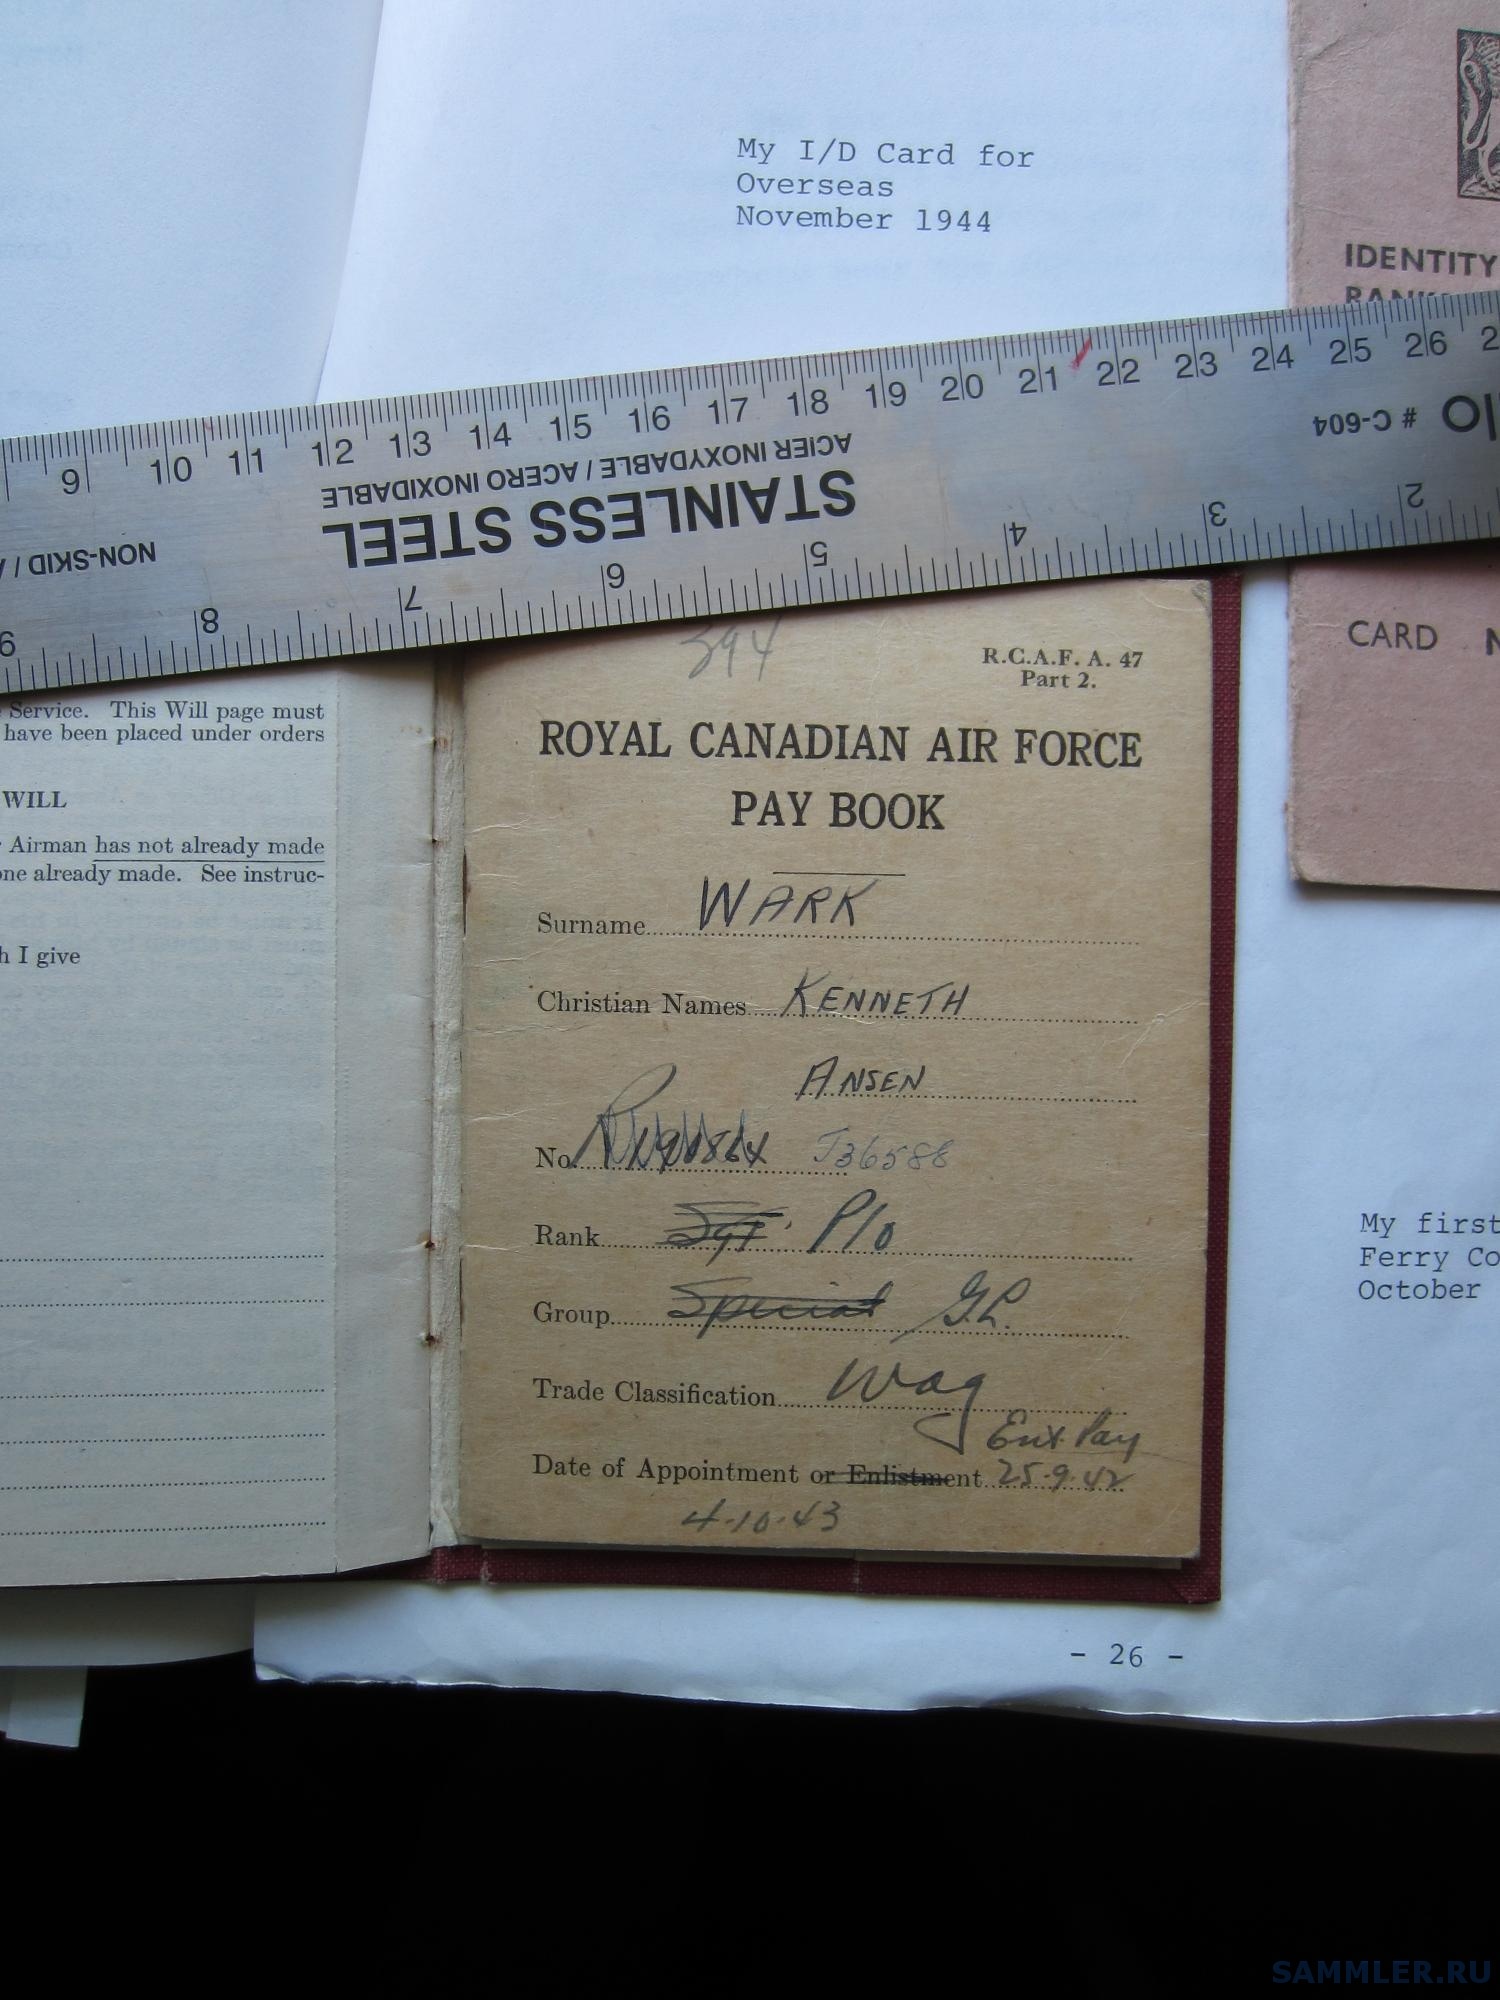 My I/D Card for
Overseas
November 1944
IDENTITY
9 10 11 12 13 14 15 16 17 18 19 20 21 22 23 24 25 26 2
# C-604
ACIER INOXYDABLE / ACERO INOXIDABLE
STAINLESS STEEL
NON-SKID /
2 3 4 5 6 7 8 9
CARD N
Service. This Will page must
have been placed under orders
WILL
Airman has not already made
one already made. See instruc-
h I give
394
R.C.A.F. A. 47
Part 2.
ROYAL CANADIAN AIR FORCE
PAY BOOK
Surname WARK
Christian Names KENNETH
ANSEN
No. J36588
Rank Sgt P/o
Group Special G.L.
Trade Classification Wag
Ent. Pay
Date of Appointment or Enlistment 25.9.42
4.10.43
My first
Ferry Co
October
- 26 -
SAMMLER.RU